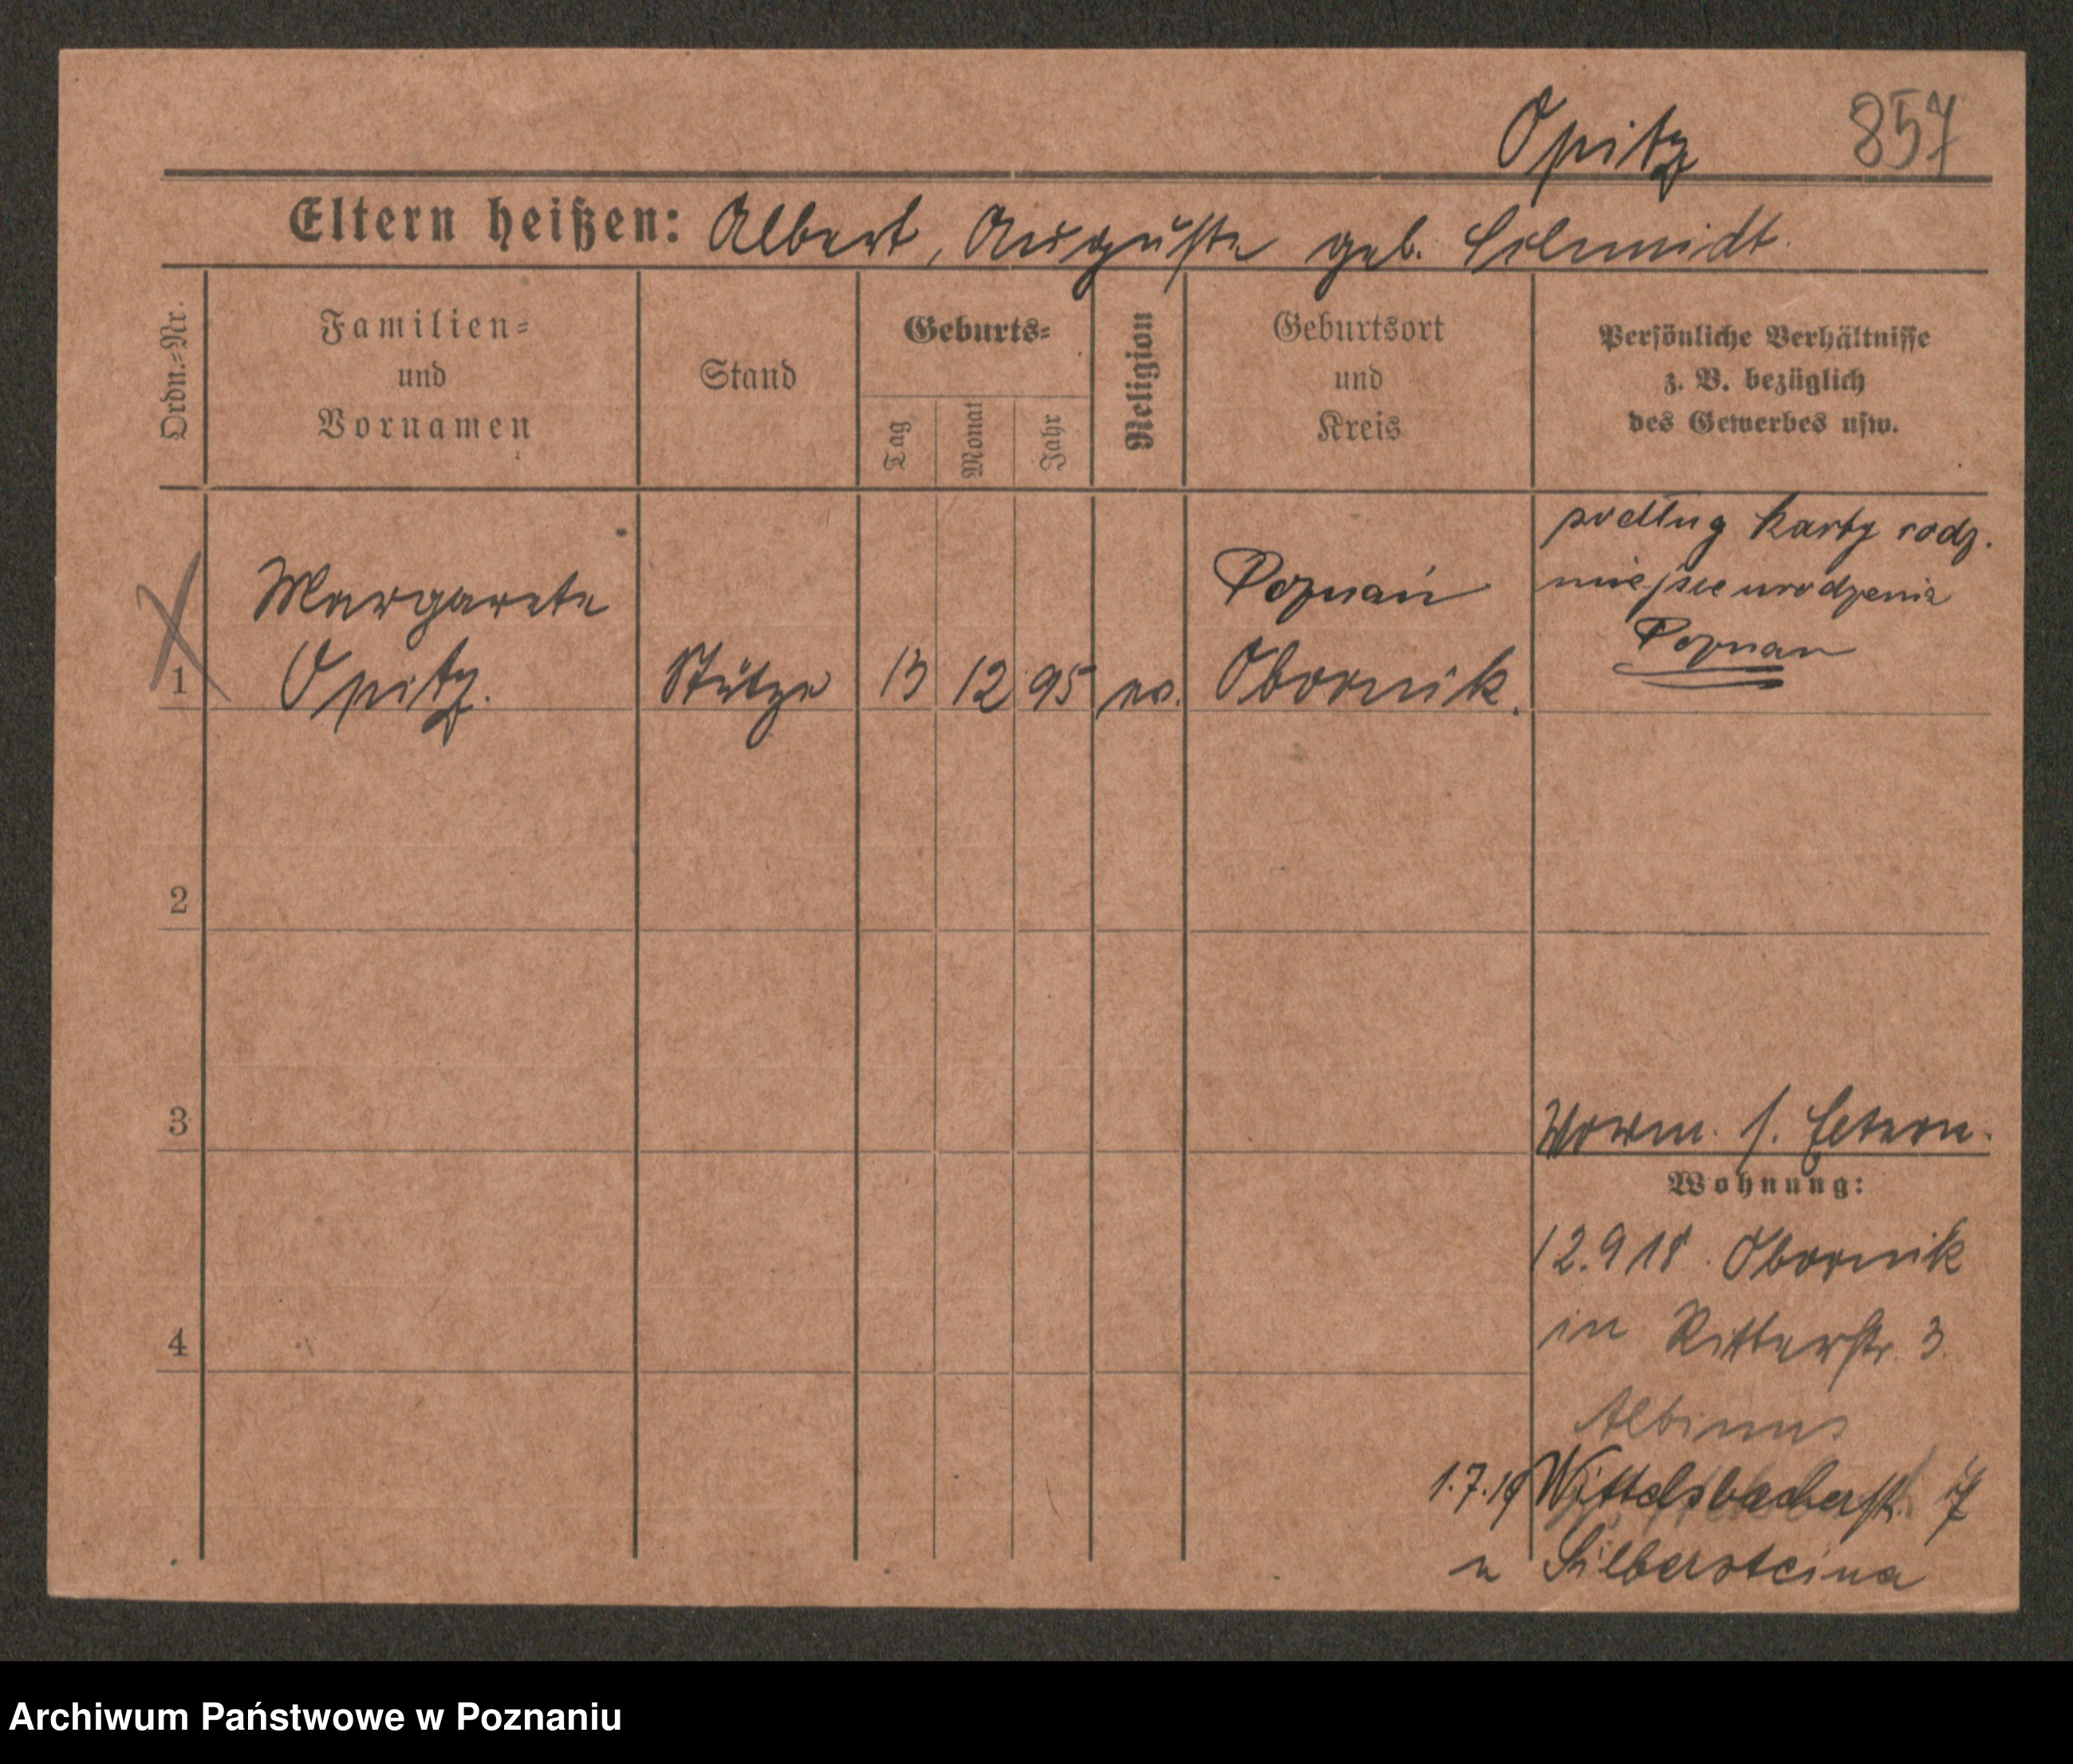 Opitz 857
Eltern heißen: Albert, Auguste geb. Schmidt.
Ordn.=Nr.
Familien=
und
Vornamen
Stand
Geburts=
Tag
Monat
Jahr
Religion
Geburtsort
und
Kreis
Persönliche Verhältnisse
z. B. bezüglich
des Gewerbes usw.
podług karty rodz.
miejsce urodzenia
Poznan
Margarete Poznań
1 Opitz. Stütze 13 12 95 ev. Obornik.
2
3
4
s. Eltern.
Wohnung:
12.9 18. Obornik
in Ritterstr. 3.
Albinus
1.7.19 Wittelsbacherstr. 7
u Silbersteina
Archiwum Państwowe w Poznaniu